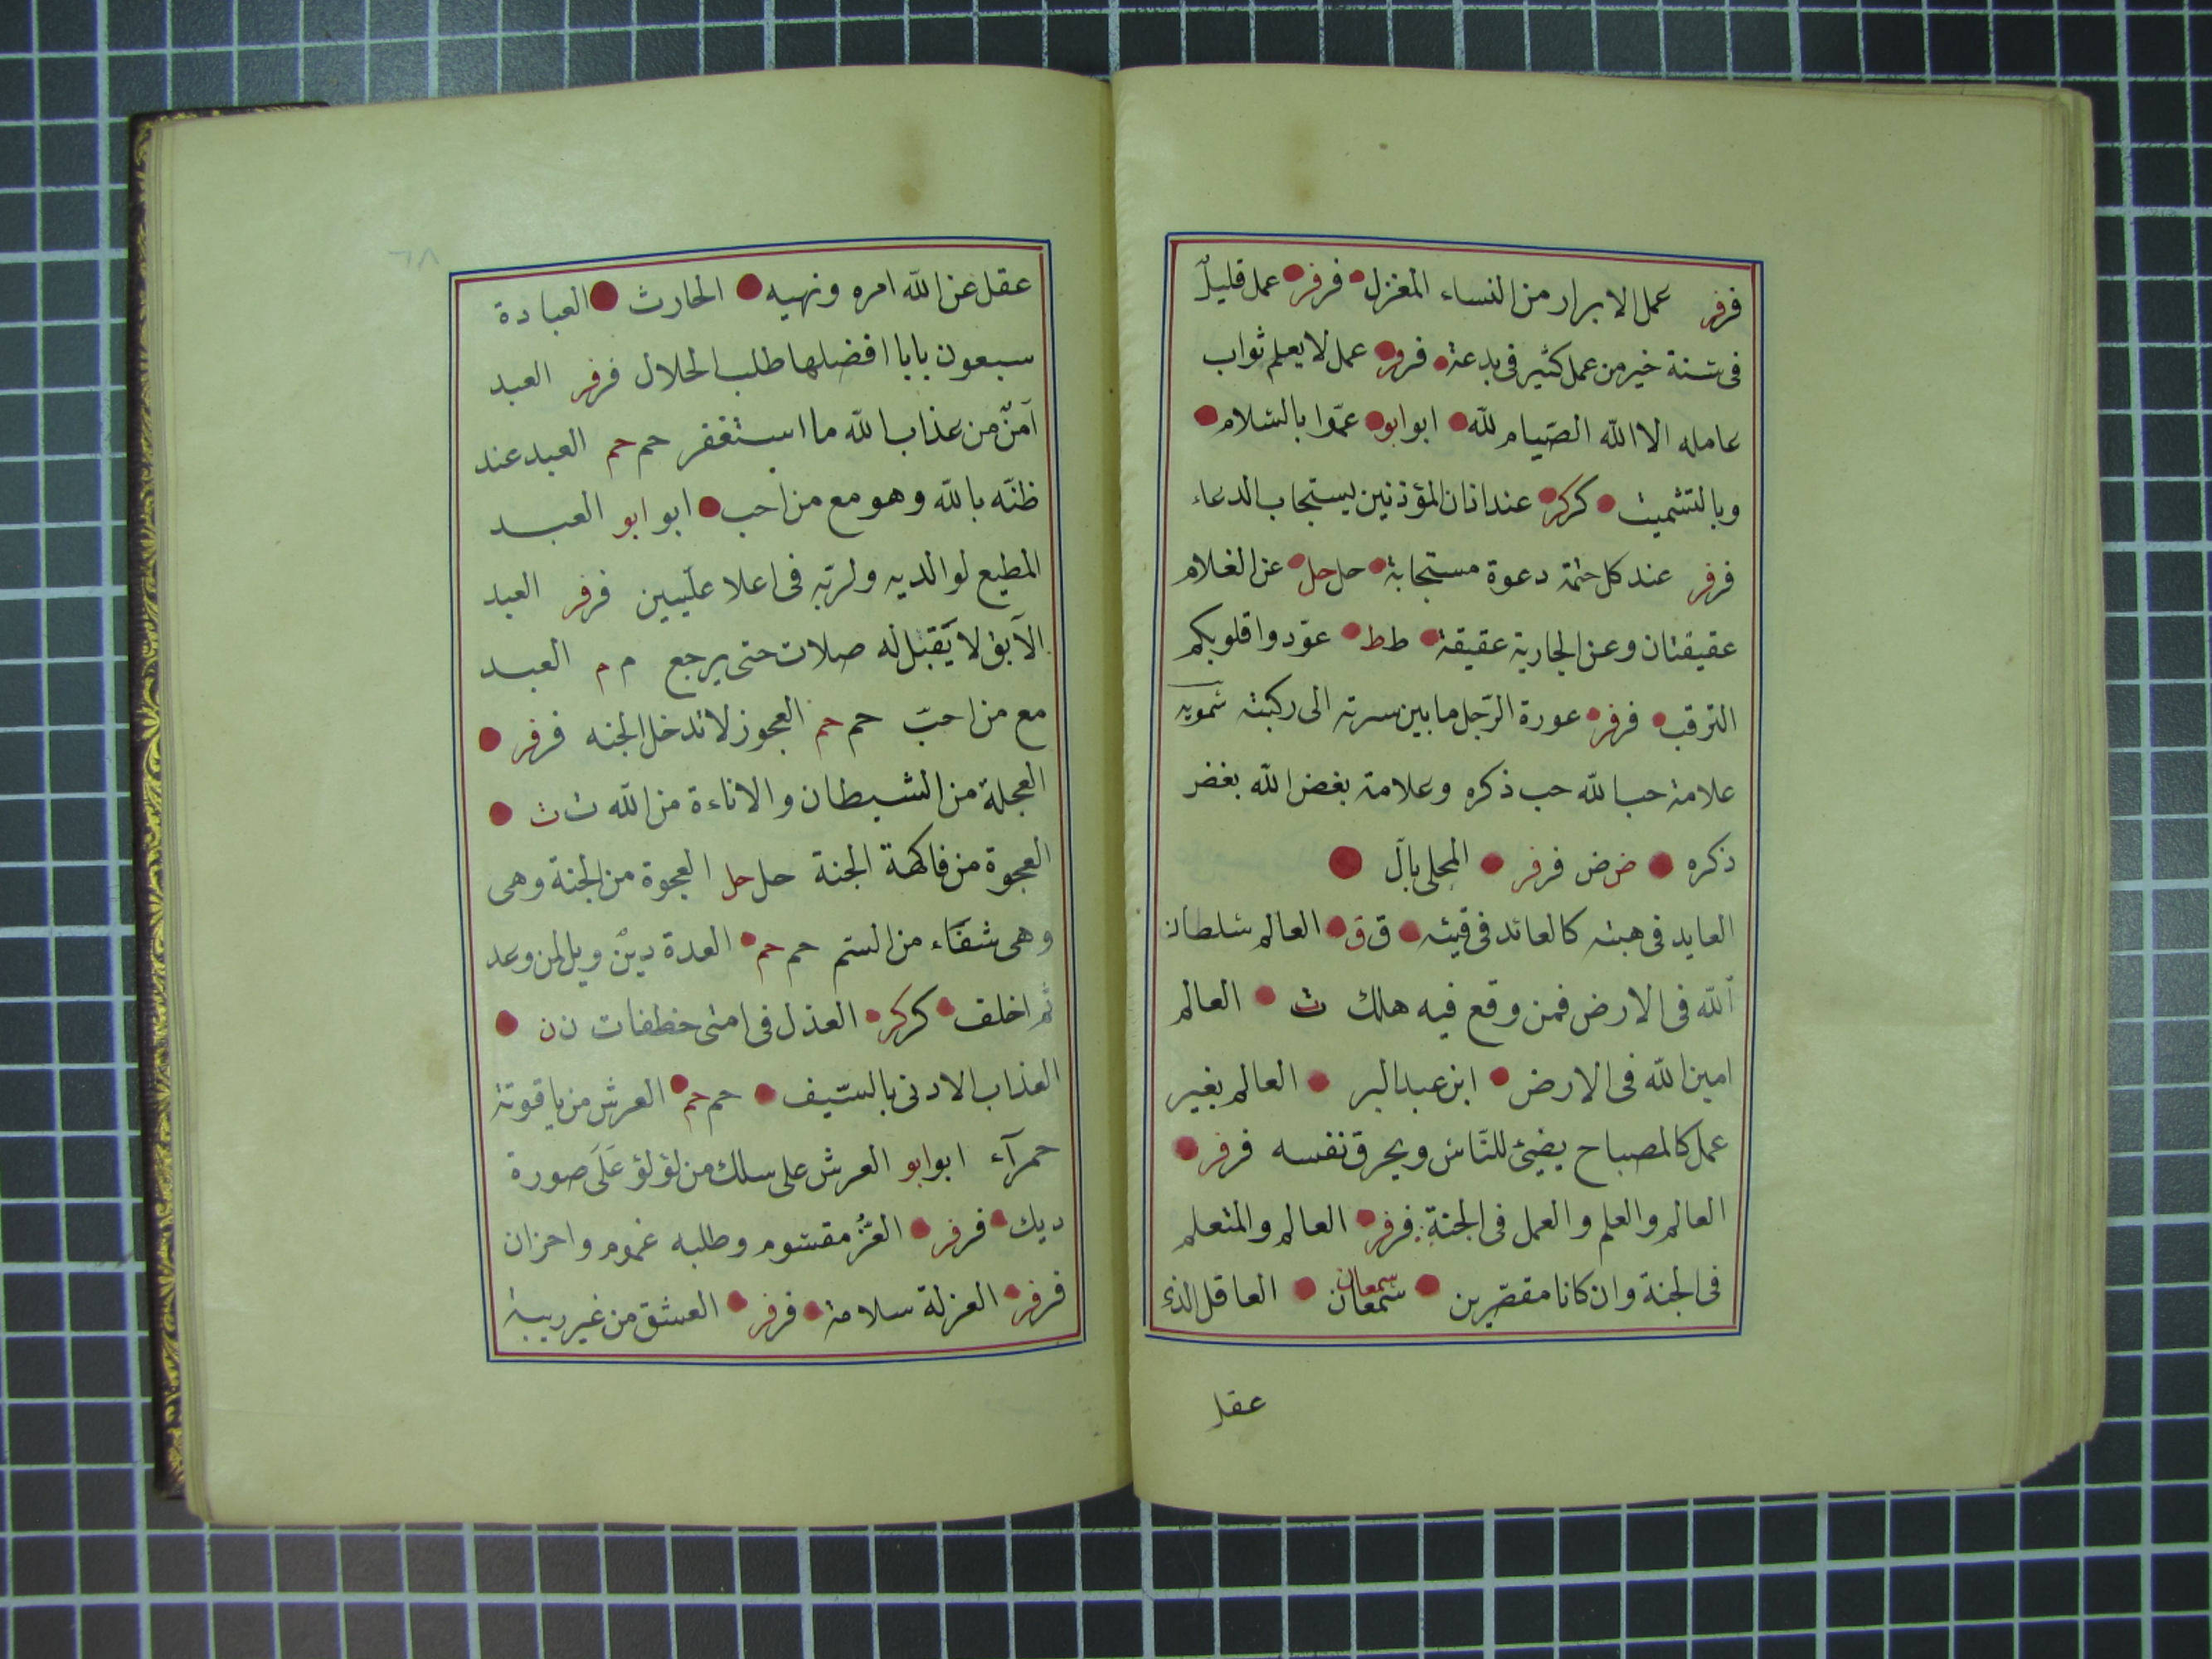 فرفر عمل الابرار من النساء المغزل فرفر عمل قليلٌ
فى سنة خير من عمل كثير فى بدعة فرفر عمل لا يعلم ثواب
عامله الا الله الصّيام لله ابو ابو عمّوا بالسّلام
وبالتشميت كركر عند اذان المؤذنين يستجاب الدعاء
فرفر عند كل ختمة دعوة مستجابة حل حل عن الغلام
عقيقتان وعن الجارية عقيقة ط ط عوّدوا قلوبكم
الترقب فرفر عورة الرّجل ما بين سرته الى ركبته سمويه
علامة حب الله حب ذكره وعلامة بغض الله بغض
ذكره ض ض فرفر المحلى بال
العايد فى هبته كالعائد فى قيئه ق ق العالم سلطان
الله فى الارض فمن وقع فيه هلك ث العالم
امين الله فى الارض ابن عبد البر العالم بغير
عمل كالمصباح يضيئ للنّاس ويحرق نفسه فرفر
العالم والعلم والعمل فى الجنة فرفر العالم والمتعلم
فى الجنة وان كانا مقصّرين سمعان سمعان العاقل الذى
عقل
٦٨
عقل عن الله امره ونهيه الحارث العبادة
سبعون بابا افضلها طلب الحلال فرفر العبد
آمنٌ من عذاب الله ما استغفر حم حم العبد عند
ظنّه بالله وهو مع من احب ابو ابو العبد
المطيع لوالديه ولربّه فى اعلا علّيين فرفر العبد
الآبق لا يُقبل له صلات حتى يرجع م م العبد
مع من احبّ حم حم العجوز لا تدخل الجنه فرفر
العجلة من الشيطان والاناءة من الله ت ت
العجوة من فاكهة الجنة حل حل العجوة من الجنة وهى
وهى شفاء من السّم حم حم العدة دينٌ ويل لمن وعد
ثم اخلف كركر العذل فى امتى خطفات ن ن
العذاب الادنى بالسّيف حم حم العرش من ياقوتة
حمرآء ابو ابو العرش على سلك من لؤلؤ عَلَى صورة
ديك فرفر العّزُ مقسوم وطلبه غموم واحزان
فرفر العزلة سلامة فرفر العشق من غير ريبة